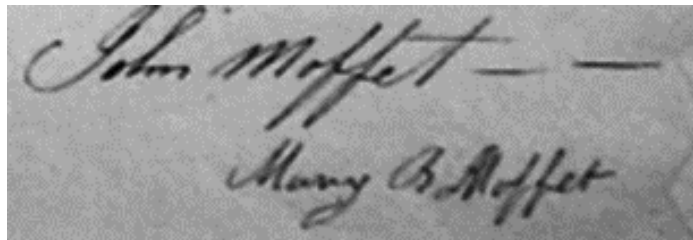 John Moffet — —
Mary B Moffet